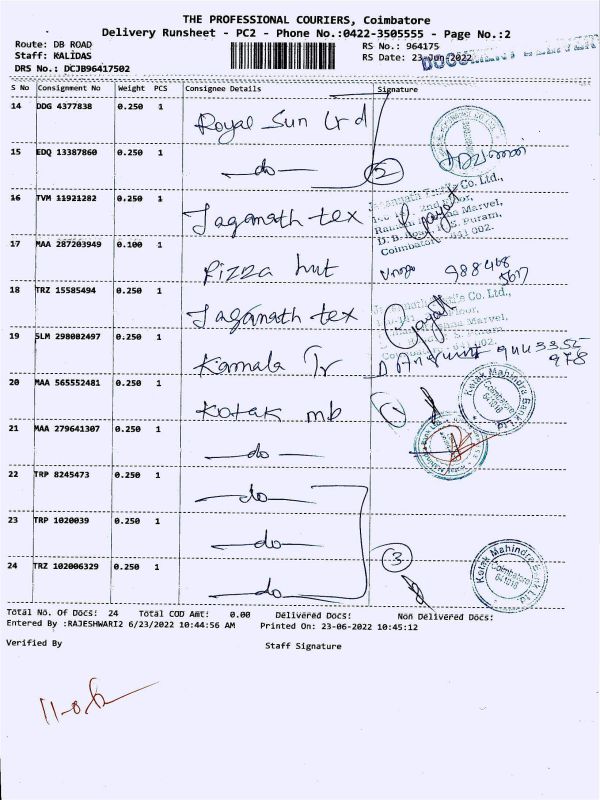 THE PROFESSIONAL COURIERS, Coimbatore
Delivery Runsheet - PC2 - Phone No.:0422-3505555 - Page No.:2
Route: DB ROAD RS No.: 964175
Staff: KALIDAS RS Date: 23-Jun-2022
DRS No.: DCJB96417502
S No Consignment No Weight PCS Consignee Details Signature
14 DDG 4377838 0.250 1 Royal Sun Ltd
15 EDQ 13387860 0.250 1 do 2
16 TVM 11921282 0.250 1 Jaganath tex
Co. Ltd.,
2nd Floor,
Marvel,
Puram,
Coimbatore 641 002.
17 MAA 287203949 0.100 1 Pizza hut 988468
5617
18 TRZ 15585494 0.250 1 Jaganath tex
Co. Ltd.,
Marvel,
641 002.
19 SLM 298082497 0.250 1 Kamala Tr 9443355
978
20 MAA 565552481 0.250 1 Kotak mb
Kotak Mahindra Bank Ltd
Coimbatore
641018
21 MAA 279641307 0.250 1 do
22 TRP 8245473 0.250 1 do
23 TRP 1020039 0.250 1 do
24 TRZ 102006329 0.250 1 do 3
Kotak Mahindra Bank Ltd
Coimbatore
641018
Total No. Of Docs: 24 Total COD Amt: 0.00 Delivered Docs: Non Delivered Docs:
Entered By :RAJESHWARI2 6/23/2022 10:44:56 AM Printed On: 23-06-2022 10:45:12
Verified By Staff Signature